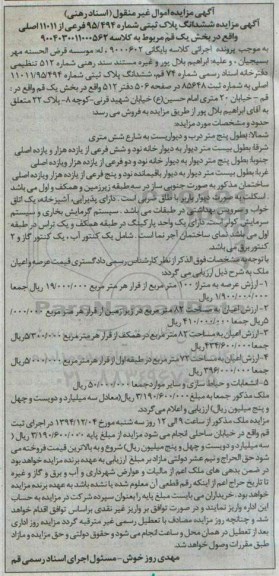 آگهی مزایده اموال غیر منقول (اسناد رهنی)
آگهی مزایده ششدانگ پلاک ثبتی شماره ۹۵/۴۹۴ فرعی از ۱۱۰۱۱ اصلی
واقع در بخش یک قم مربوط به کلاسه ۹۰۰۴۰۳۰۰۱۱۰۰۰۵۶۲
به موجب پرونده اجرائی کلاسه بایگانی ۹۰۰۰۶۰۲ له: موسسه قرض الحسنه مهر
بسیجیان - و علیه: ابراهیم بلال پور و غیره مستند سند رهنی شماره ۵۱۲ تنظیمی
دفترخانه اسناد رسمی شماره ۷۴ قم، ششدانگ پلاک ثبتی شماره ۱۱۰۱۱/۹۵/۴۹۴
اصلی به شماره ثبت ۸۵۶۴۸ در صفحه ۵۰۶ دفتر ۵۱۲ واقع در بخش یک قم واقع در :
قم - خیابان ۲۰ متری امام حسین(ع) خیابان شهید قرنی-کوچه ۸- پلاک ۲۲ متعلق
به آقای ابراهیم بلال پور از طریق مزایده به فروش می رسد:
حدود و مشخصات مورد مزایده:
شمالا بطول پنج متر درب و دیواریست به شارع شش متری
شرقا بطول بیست متر دیوار به دیوار خانه نود و شش فرعی از یازده هزار و یازده اصلی
جنوبا بطول پنج متر دیوار به دیوار خانه نود و دو فرعی از یازده هزار و یازده اصلی
غربا بطول بیست متر دیوار به دیوار باقیمانده نود و پنج فرعی از یازده هزار و یازده اصلی
ساختمان مذکور به صورت جنوبی ساز در سه طبقه زیرزمین و همکف و اول می باشد
اسکلت به صورت دیوار باربر با طاق ضربی است. دارای پذیرایی، آشپزخانه، یک اتاق
خواب و سرویس بهداشتی در طبقات می باشد. سیستم گرمایش بخاری و سیستم
سرمایش کولر است. دارای یک واحد پارکینگ در طبقه همکف و یک تراس در طبقه
اول می باشد. نمای ساختمان آجر نما است. شامل یک کنتور آب ، یک کنتور گاز و ۲
کنتور برق می باشد.
با توجه به مشخصات فوق الذکر از نظر کارشناس رسمی دادگستری قیمت عرصه و اعیان
ملک به شرح ذیل ارزیابی می گردد:
۱- ارزش عرصه به متراژ ۱۰۰ متر مربع از قرار هر متر مربع ۱۹/۰۰۰/۰۰۰ ریال جمعا
۱/۹۰۰/۰۰۰/۰۰۰ ریال
۲- ارزش اعیان به مساحت ۸۲ متر مربع در زیر زمین از قرار هر متر مربع ۵/۰۰۰/۰۰۰
ریال جمعا ۴۱۰/۰۰۰/۰۰۰ ریال
۳- ارزش اعیان به مساحت ۸۲ متر مربع در همکف از قرار هر متر مربع ۵/۳۰۰/۰۰۰ ریال
جمعا ۴۳۴/۶۰۰/۰۰۰ ریال
۴- ارزش اعیان به مساحت ۷۲ متر مربع در طبقه اول از قرار هر متر مربع ۵/۰۰۰/۰۰۰ ریال
جمعا ۳۹۶/۰۰۰/۰۰۰ ریال
۵- انشعابات و حیاط سازی و سایر موارد جمعا ۵۰/۰۰۰/۰۰۰ ریال
ملک مذکور جمعا به مبلغ ۳/۱۹۰/۶۰۰/۰۰۰ ریال(معادل سه میلیارد و
ریال) ارزیابی و اعلام می گردد.
مزایده ملک مذکور از ساعت ۹ الی ۱۲ روز سه شنبه مورخ ۱۳۹۴/۱۲/۰۴ در اجرای ثبت
قم واقع در خیابان ساحلی انجام می شود مزایده از مبلغ پایه ۳/۱۹۰/۶۰۰/۰۰۰ ریال (
سه میلیارد و ریال) شروع و به بالاترین قیمت فروخته می
شود حق الحراج و نیم عشر دولتی مازاد بر مبلغ ارزیابی به عهده برنده مزایده خواهد بود
در ضمن بدهی های ملک اعم از مالیات و عوارض شهرداری و آب و برق و گاز و غیره
تا تاریخ حراج اعم از اینکه رقم قطعی آن معلوم شده یا نشده باشد به عهده برنده مزایده
خواهد بود. خریداران می بایست مبلغ پایه را بعنوان سپرده شرکت در مزایده به حساب
این اداره واریز نمایند و در صورت توافق بر واریز غیر نقدی براساس توافق اقدام خواهد
شد. و چنانچه روز مزایده مصادف با تعطیل رسمی غیر مترقبه گردد مزایده روز اداری
بعد از تعطیل در همان محل و ساعت انجام می شود و حقوق دولتی و حق مزایده و مازاد
طبق مقررات وصول خواهد شد.
مهدی روز خوش - مسئول اجرای اسناد رسمی قم